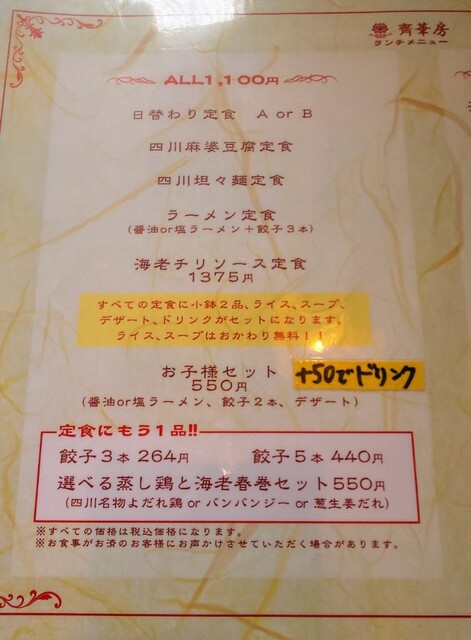 齊華房
ランチメニュー
ALL1,100円
日替わり定食 A or B
四川麻婆豆腐定食
四川坦々麺定食
ラーメン定食
(醤油or塩ラーメン+餃子3本)
海老チリソース定食
1375円
すべての定食に小鉢2品、ライス、スープ、
デザート、ドリンクがセットになります。
ライス、スープはおかわり無料!!
お子様セット
550円
+50でドリンク
(醤油or塩ラーメン、餃子2本、デザート)
定食にもう1品!!
餃子3本 264円 餃子5本 440円
選べる蒸し鶏と海老春巻セット550円
(四川名物よだれ鶏 or バンバンジー or 葱生姜だれ)
※すべての価格は税込価格になります。
※お食事がお済のお客様にお声かけさせていただく場合があります。